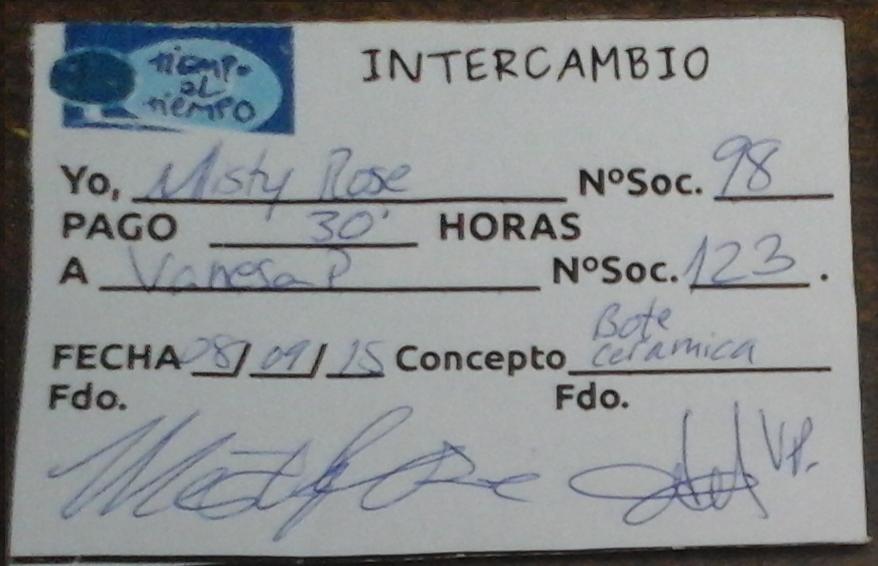 tiempo
al
tiempo
INTERCAMBIO
Yo, Misty Rose NºSoc. 98
PAGO 30' HORAS
A Vanesa P NºSoc. 123.
Bote
FECHA 08/09/15 Concepto ceramica
Fdo. Fdo.
V.P.